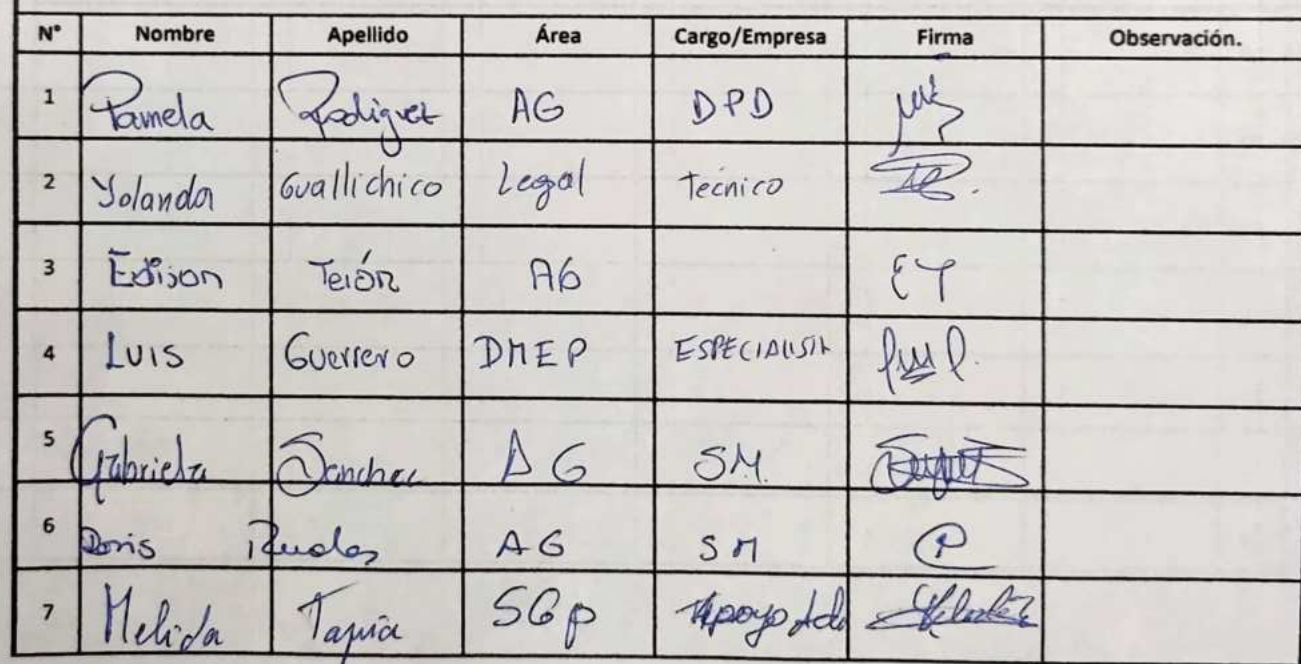 N° Nombre Apellido Área Cargo/Empresa Firma Observación.
1 Pamela Rodriguez AG DPD
2 Yolanda Guallichico Legal Tecnico
3 Edison Terán AG EY
4 LUIS Guerrero DMEP ESPECIALISTA
5 Gabriela Sanchez AG SM
6 Doris Rueda AG SM
7 Melida Tapia SGP Apoyo